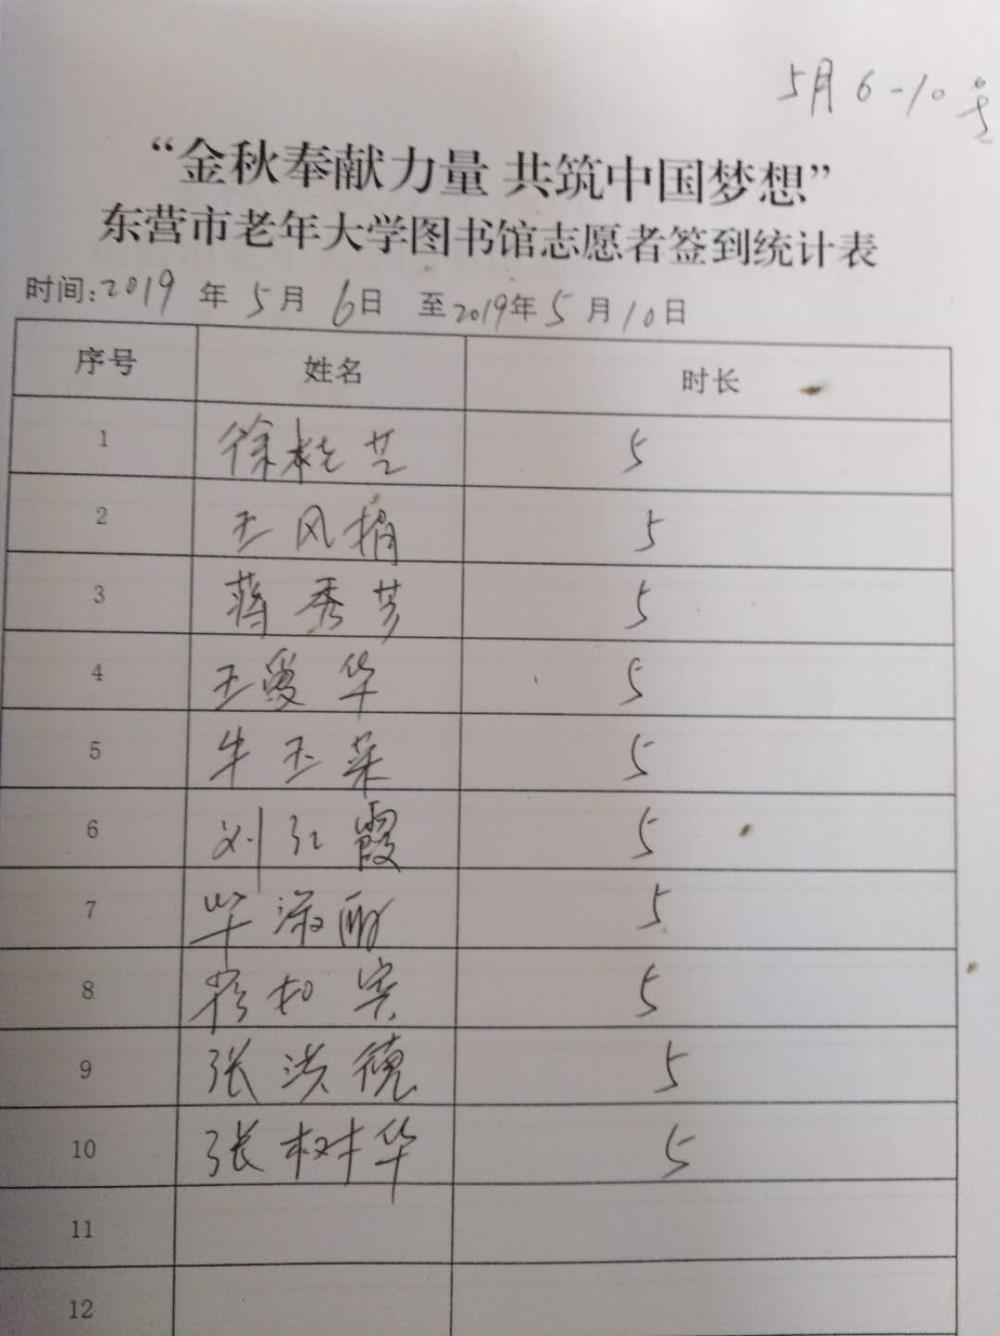 5月6-10号
“金秋奉献力量 共筑中国梦想”
东营市老年大学图书馆志愿者签到统计表
时间:2019年5月6日 至2019年5月10日
序号 姓名 时长
1 徐桂芝 5
2 王风娟 5
3 蒋秀芳 5
4 王爱华 5
5 牛玉荣 5
6 刘红霞 5
7 毕淑丽 5
8 5
9 张洪德 5
10 张树华 5
11
12